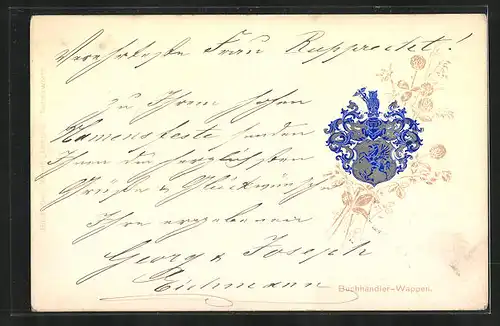 Verehrteste Frau Rupprecht!
Zu Ihrem hohen
Namensfeste senden
Ihnen die herzlichsten
Grüße & Glückwünsche
Ihre ergebenen
Georg & Joseph
Eichmann
Buchhändler-Wappen.